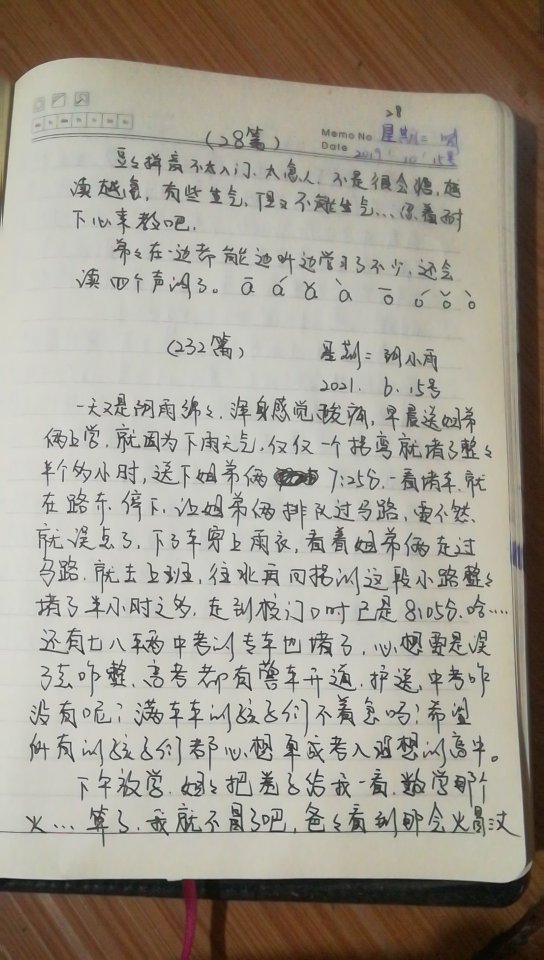 28
Memo No. 星期二 晴
Date 2019. 10. 15号
(28篇)
豆々拼音不太入门、太急人、不是很会拼，越
读越急，有些生气，但又不能生气…保着耐
下心来教吧.
弟々在一边都能边听边学习了不少，还会
读四个声调了。ā á ǎ à ō ó ǒ ò
(232篇)
星期二 阴小雨
2021. 6. 15号
一天又是阴雨绵々. 浑身感觉酸痛，早晨送姐弟
俩上学. 就因为下雨天气，仅仅一个拐弯就堵了整々
半个多小时，送下姐弟俩 7:25分. 一看堵车. 就
在路东. 停下. 让姐弟俩排队过马路，要不然.
就误点了，下了车穿上雨衣，看着姐弟俩走过
马路. 就去上班，往北再向拐的这段小路整々
堵了半小时之多，走到校门口时已是8:05分. 哈…
还有七八辆中考的专车也堵了，心想要是误
了去咋整，高考都有警车开道. 护送，中考咋
没有呢？满车车的孩子们不着急吗？希望
所有的孩子们都心想事成考入理想的高中。
下午放学. 姐々把卷子给我一看. 数学那个
火… 算了. 我就不冒了吧，爸々看到那会火冒三丈